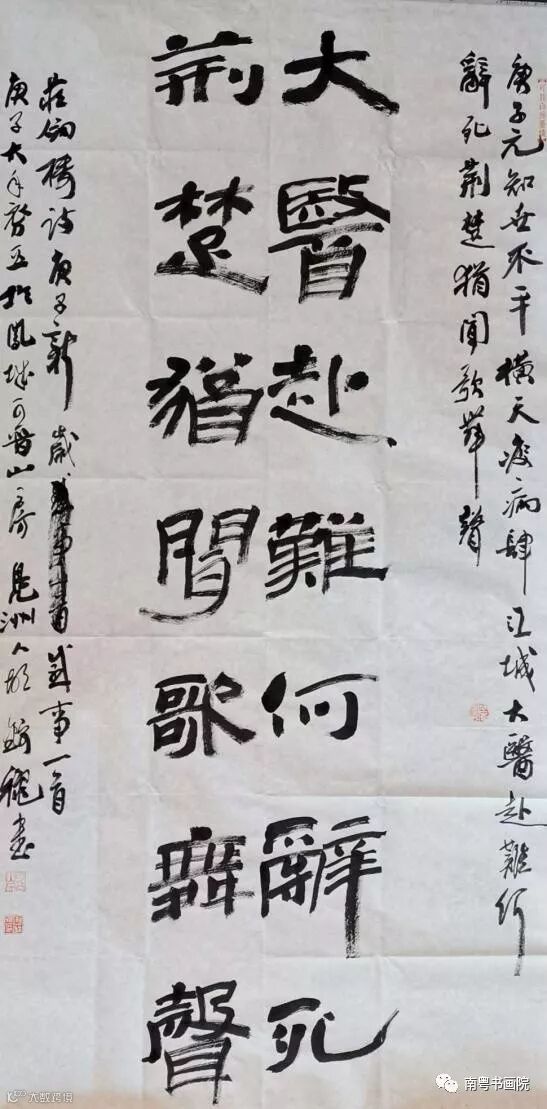 庚子元知世不平橫天疫病肆江城大醫赴難何
辭死荊楚猶聞歌舞聲
大醫赴難何辭死
荊楚猶聞歌舞聲
詩庚子新歲感事一首
庚子大年初五於鳳城可山房洲人書
大数跨境
南粤书画院